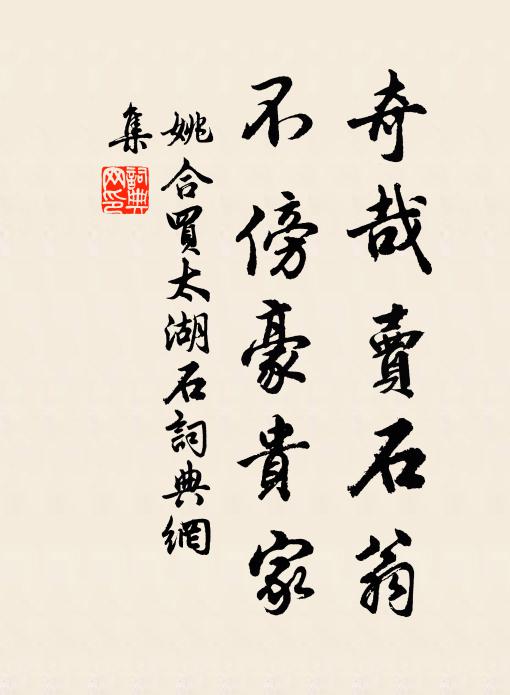 奇哉賣石翁
不傍豪貴家
姚合買太湖石詞典網
集
詞典網印